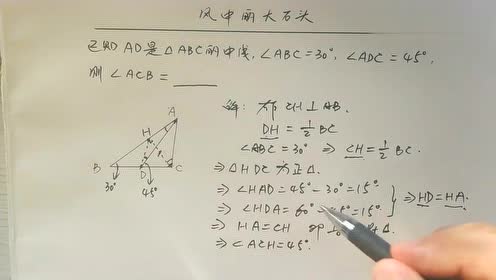 风中的大石头
已知 AD是△ABC的中线, ∠ABC=30°, ∠ADC=45°,
则 ∠ACB=
A
H
B
D
C
30°
45°
解: 作 CH⊥AB.
DH=½BC
∠ABC=30° ⇒ CH=½BC.
⇒ △HDC为正△.
⇒ ∠HAD=45°-30°=15°
⇒ ∠HDA=60°-45°=15°
⇒ HD=HA.
⇒ HA=CH
⇒ ∠ACH=45°.